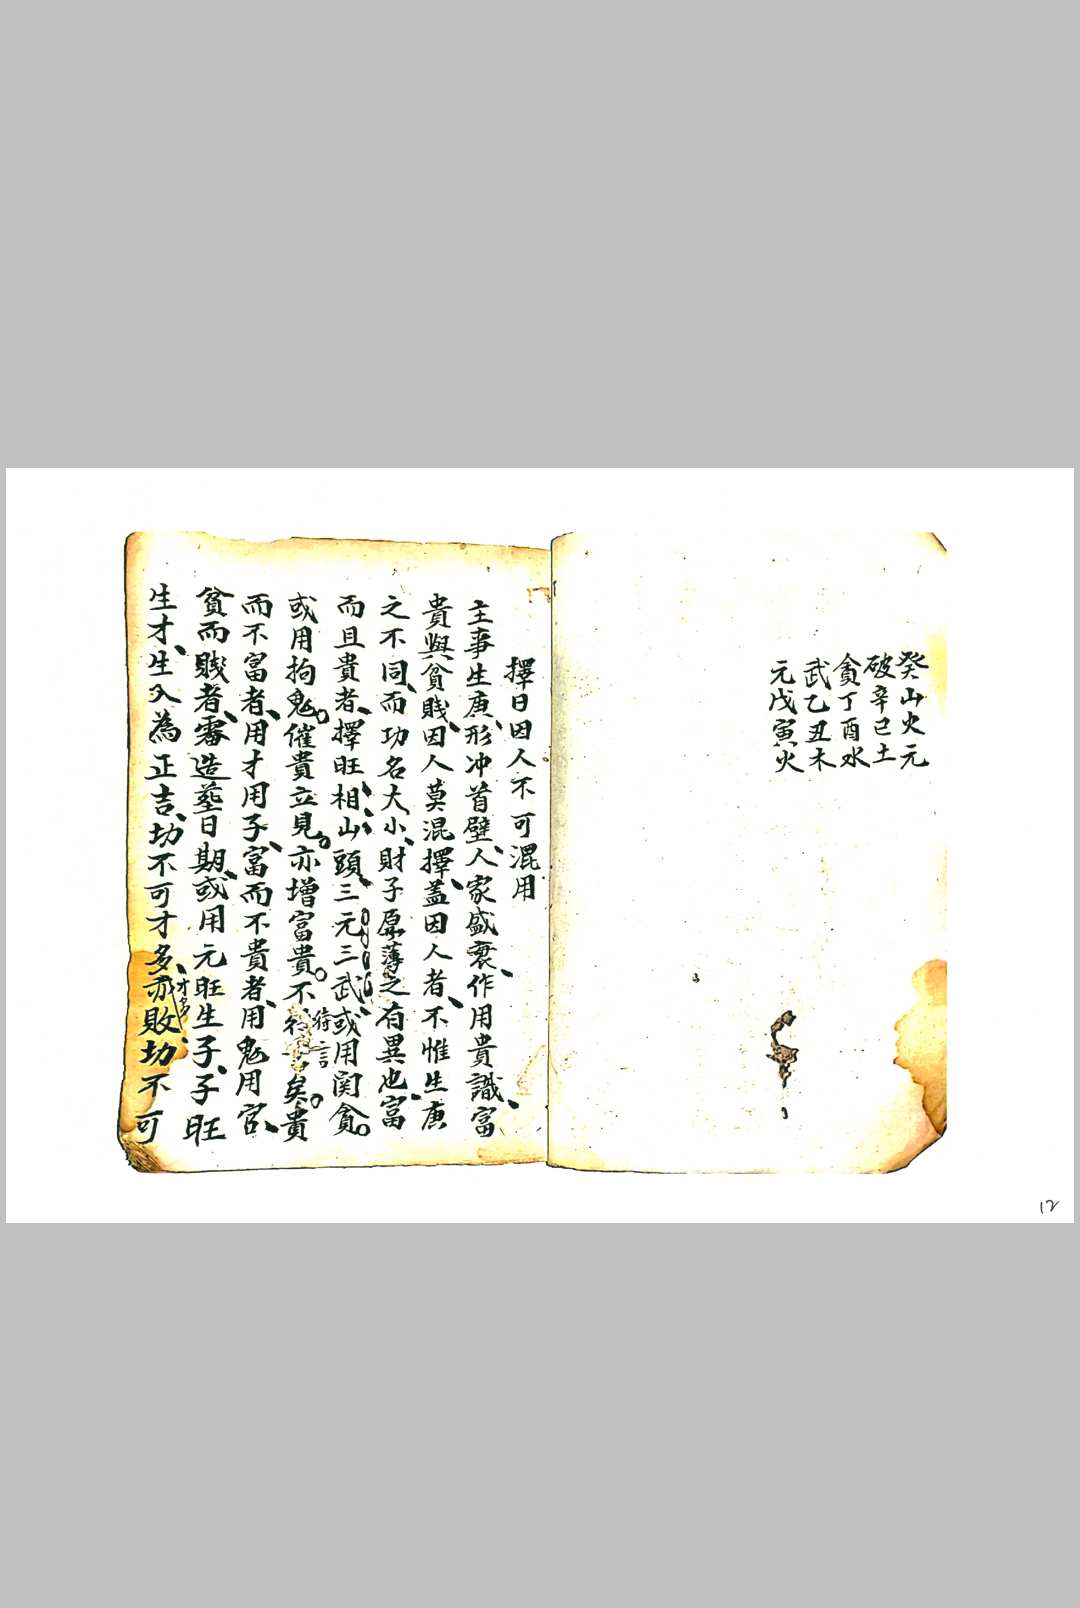 癸山火元
破辛巳土
貪丁酉水
武乙丑木
元戊寅火
擇日因人不可混用
主事生庚形冲首壁人家盛衰作用貴識富
貴與貧賤因人莫混擇蓋因人者不惟生庚
之不同而功名大小財子原薄之有異也富
而且貴者擇旺相山頭三元三武或用関貪
或用拘鬼催貴立見亦增富貴不待言矣貴
而不富者用才用子富而不貴者用鬼用官
貧而賤者需造塟日期或用元旺生子子旺
生才生入為正吉切不可才多才多亦敗切不可
12